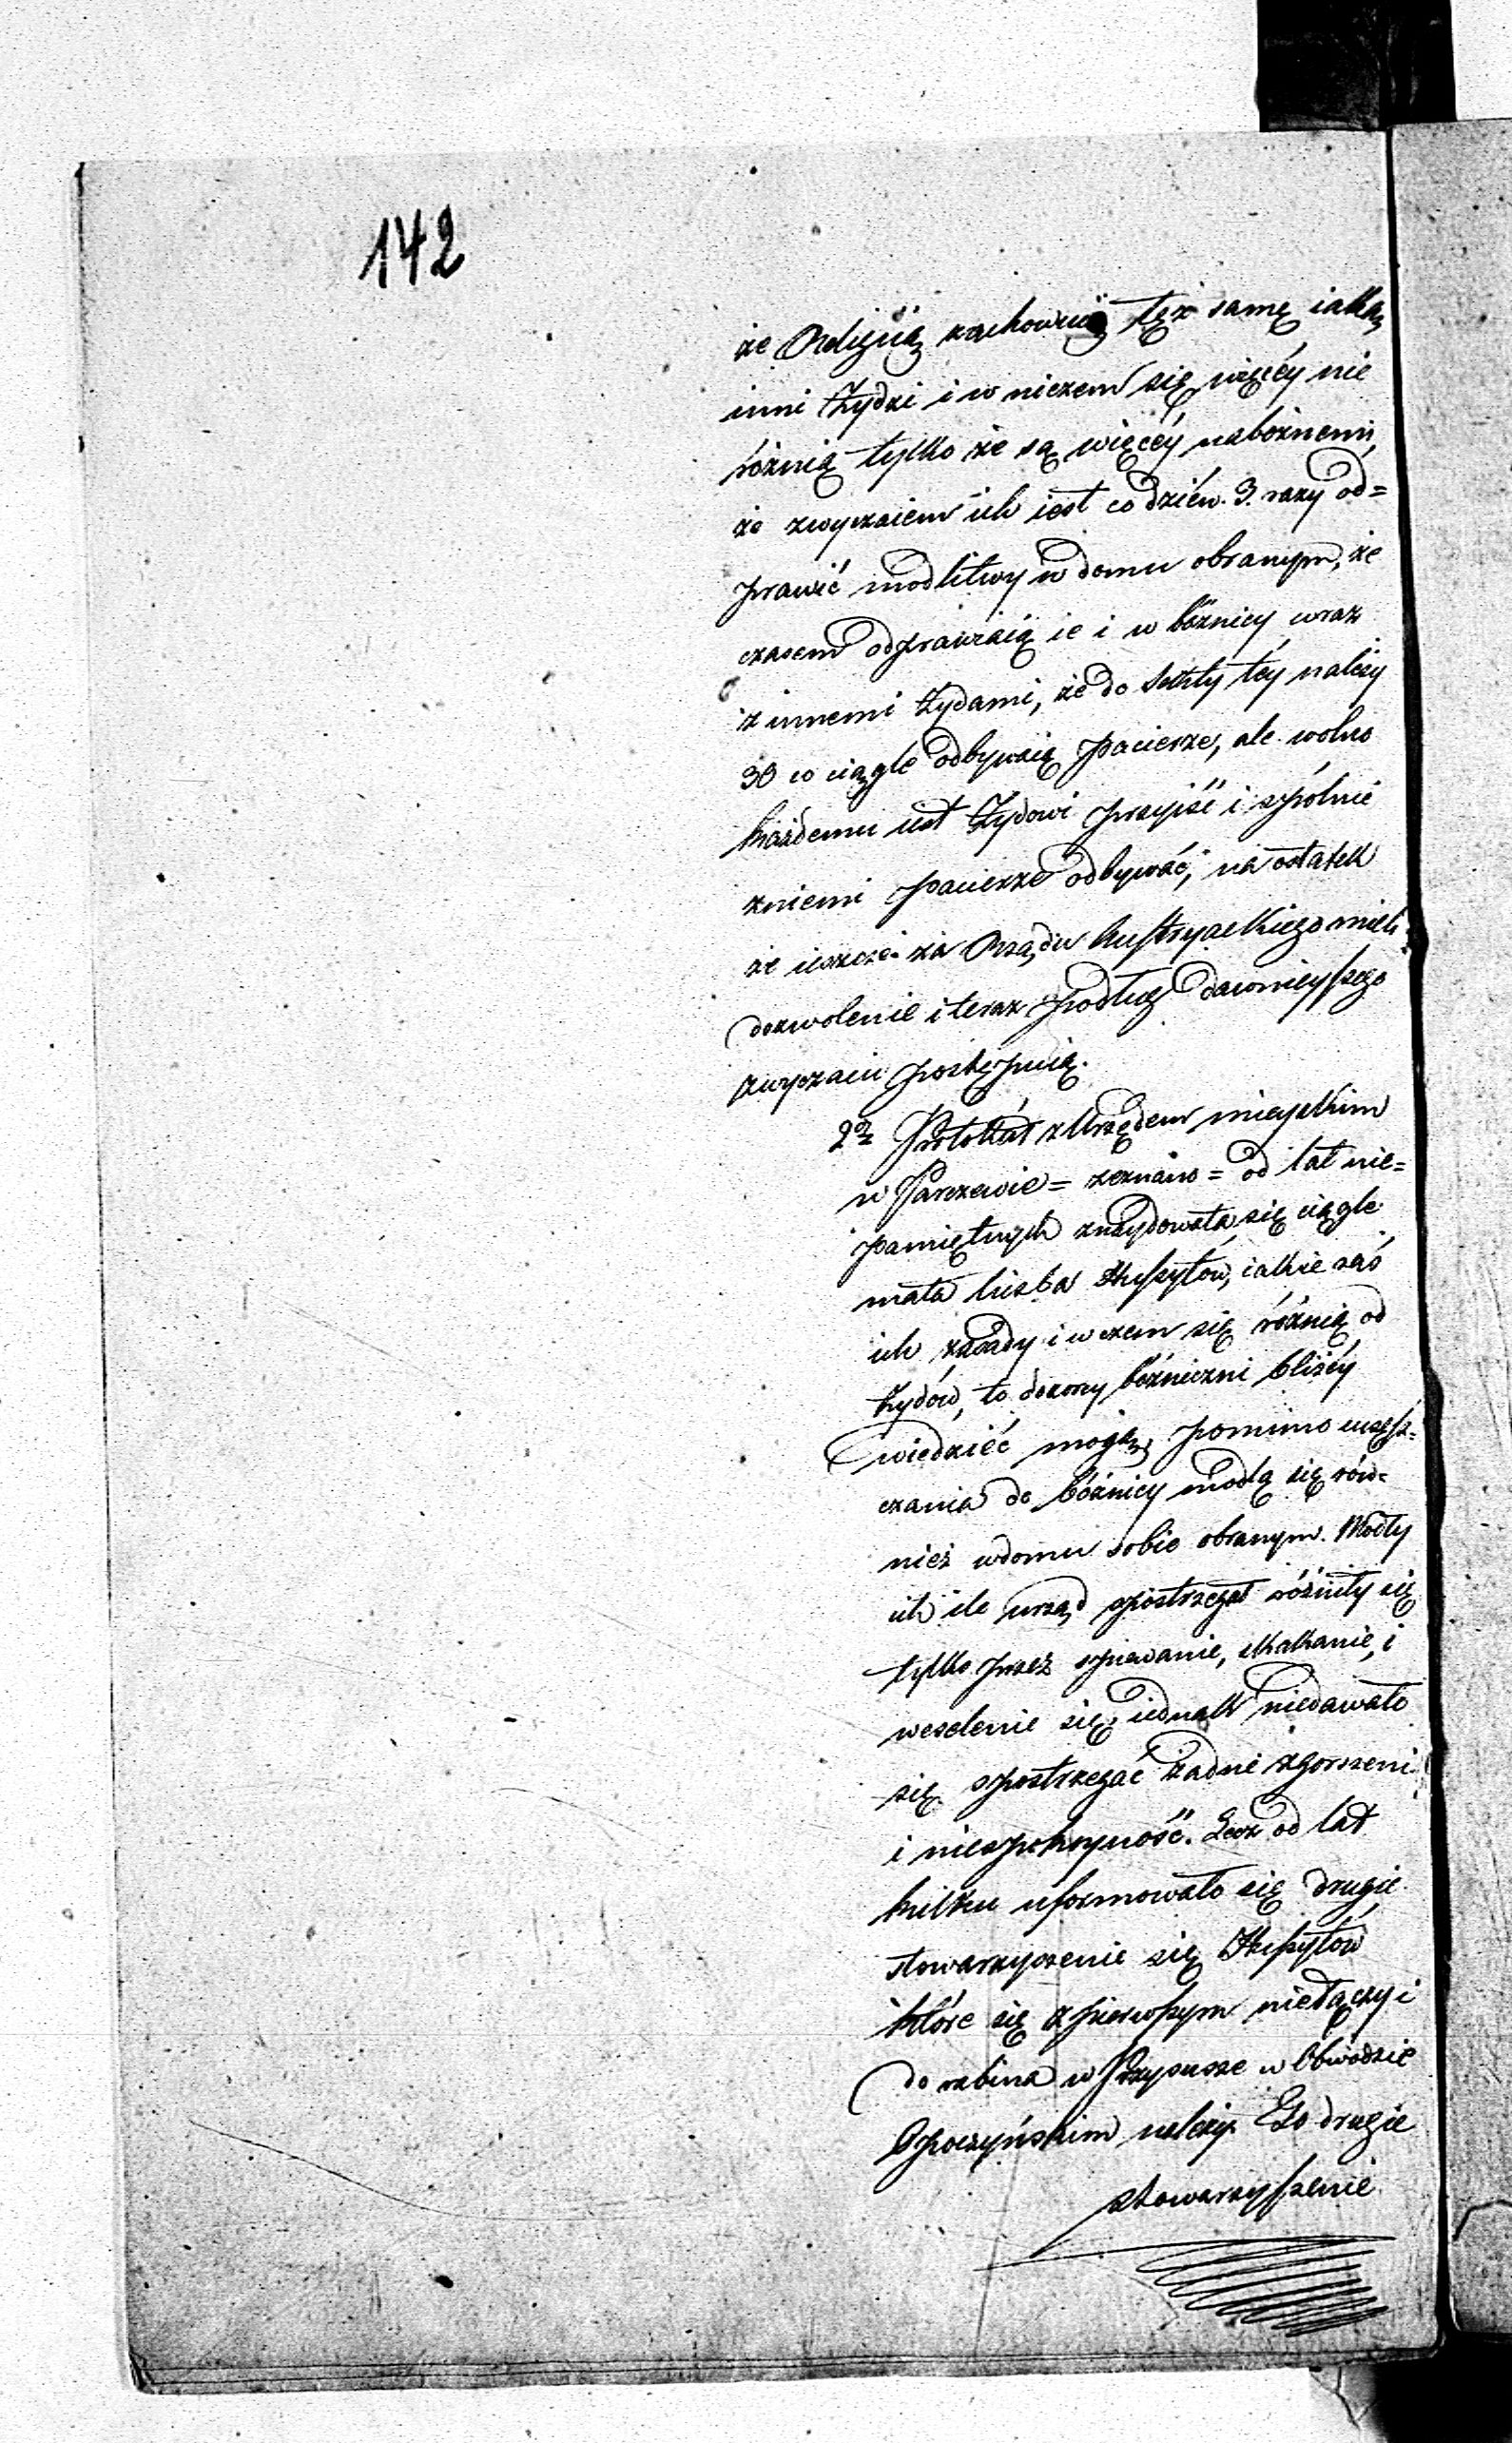 142
że Religiią zachowuią tęż samę iaką
inni Żydzi i w niczem się więcéy nie
różnią tylko że są więcéy nabożnemi,
że zwyczaiem ich iest co dzień 3. razy od=
prawić modlitwy w domu obranym, że
czasem odprawiaią ie i w bóżnicy wraz
z innemi Żydami, że do Sekty téy należy
30 co ciągle odbywaią pacierze, ale wolno
każdemu iest Żydowi przyiść i spólnie
zniemi pacierze odbywać, na ostatek
że ieszcze za Rządu Austryackiego mieli
dozwolenie i teraz podług dawnieyszego
zwyczaiu postępuią.
2o Protokół z Urzędem mieyskim
w Parczewie = zeznano = od lat nie=
pamiętnych znaydowała się ciągle
mała liczba Hussytów, iakie zaś
ich zasady i w czem się różnią od
Żydów, to dozory bóżniczni bliżéy
wiedzieć mogą, pomimo uczęsz=
czania do bóżnicy modlą się rów=
nież wdomu sobie obranym. Modły
ich ile urząd spostrzegał różniły się
tylko przez spiewanie, skakanie, i
weselenie się, iednak niedawało
się spostrzegać żadne zgorszeni
i niespokoyność. Lecz od lat
kilku uformowało się drugie
stowarzyszenie się Hussytów
które się z pierwszym niełączy i
do rabina w Przysusze w Obwodzie
Opoczyńskim należy. To drugie
stowarzyszenie